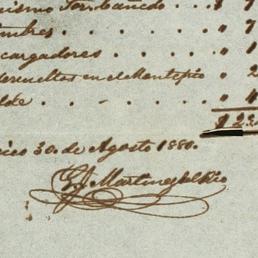 nismo Sor. bañedo . $ 7
mbres . . . . . " 7
cargadores . . . "
devueltos en el Montepio " 2
lde . - . . . " 4
$ 23
ico 30. de Agosto 1880.
G. J. Martinez del Rio